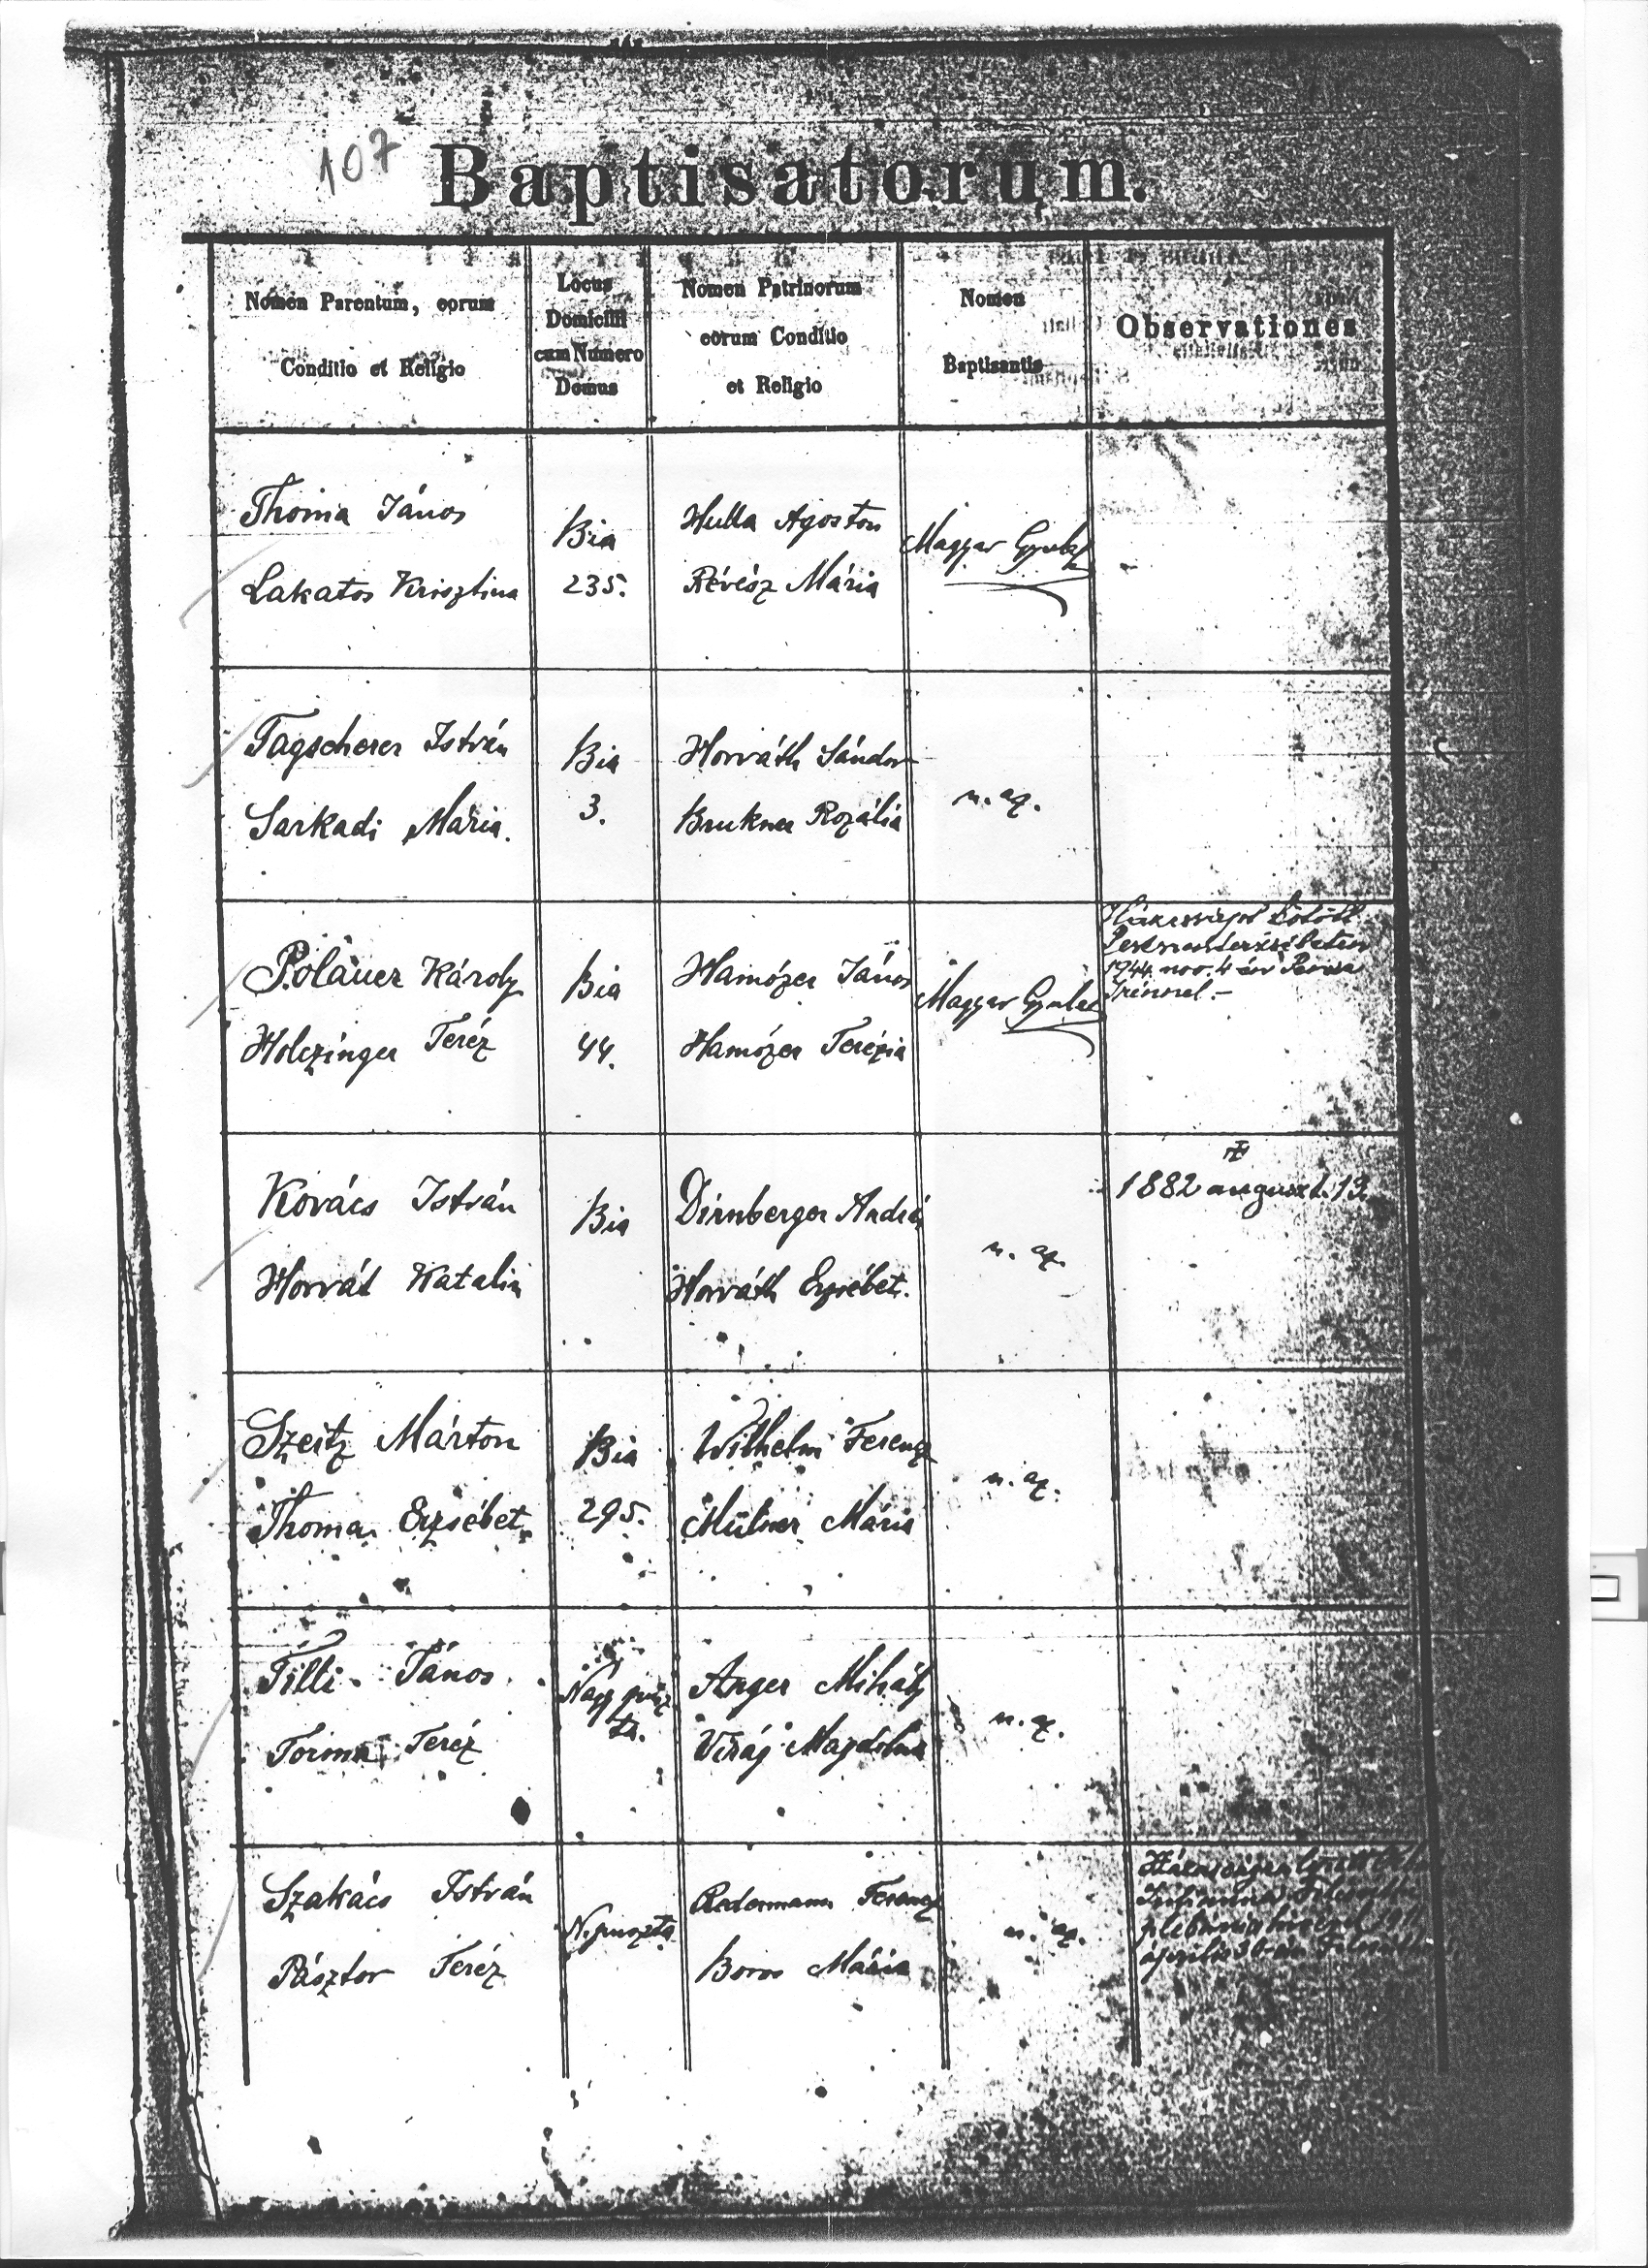 107
Baptisatorum.
Nomen Parentum, eorum
Conditio et Religio
Locus
Domicilii
cum Numero
Domus
Nomen Patrinorum
eorum Conditio
et Religio
Nomen
Baptisantis
Observationes
Thoma János
Lakatos Krisztina
Bia
235.
Hulla Agoston
Révész Mária
Magyar Gyula
Tagscherer István
Sarkadi Mária.
Bia
3.
Horváth Sándor
Brukner Rozália
n. az.
Polauer Károly
Holczinger Teréz
Bia
44.
Hamózer János
Hamózer Terézia
Magyar Gyula
Házasságot kötött
Pestszenterzsébeten
1944. nov. 4 én
Irénnel.-
Kovács István
Horvát Katalin
Bia
Dirnberger András
Horváth Erzsébet.
n. az.
1882 auguszt. 13.
Szeitz Márton
Thoma Erzsébet.
Bia
295.
Wilhelm Ferencz
Mülner Mária
n. az.
Tilli János
Torma Teréz
Nagy pusz
ta.
Anger Mihály
Virág Magdolna
n. az.
Szakács István
Pásztor Teréz
N.puszta
Redermann Ferencz
Boros Mária
n. az.
április 30-án